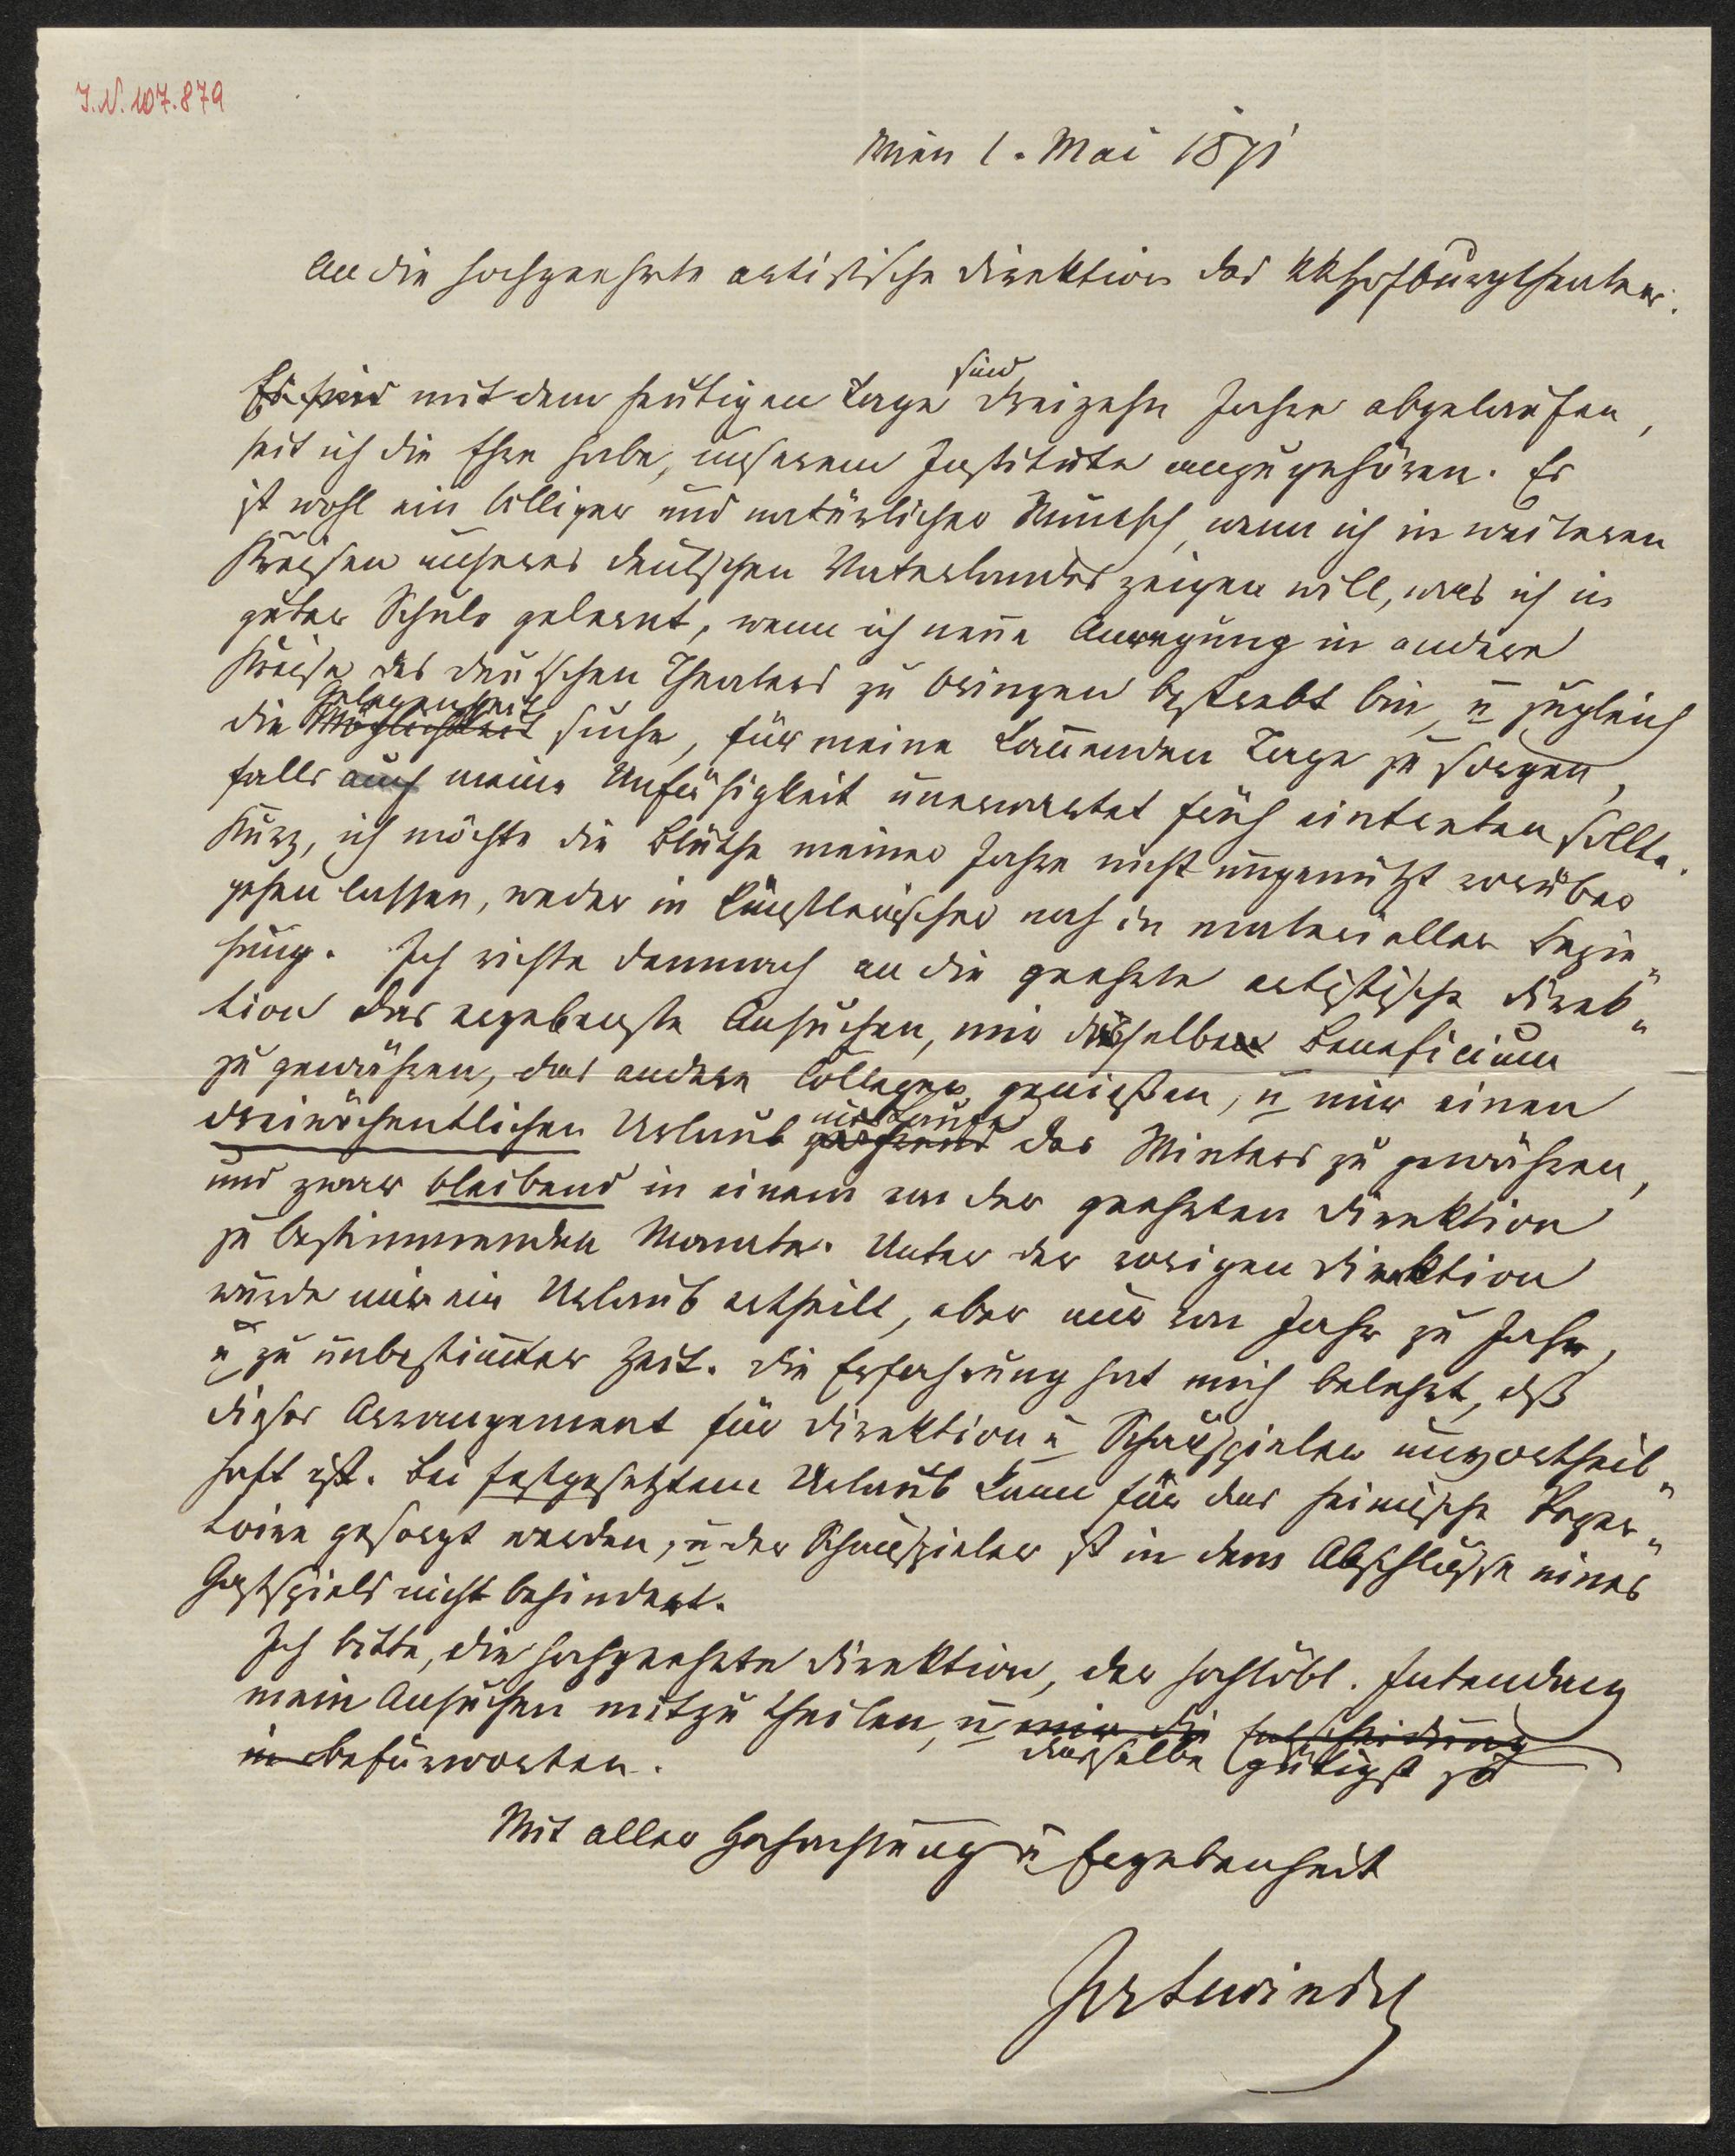 J.N. 107.879
Wien 1. Mai 1871
An die hochgeehrte artistische Direktion des kk Hofburgtheaters.
Es sind mit dem heutigen Tage sind dreizehn Jahre abgelaufen,
seit ich die Ehre habe, unserem Institute anzugehören. Es
ist wohl ein billiger und natürlicher Wunsch, wenn ich in weiteren
Kreisen unseres deutschen Vaterlandes zeigen will, was ich in
guter Schule gelernt, wenn ich neue Anregung in andere
Kreise des deutschen Theaters zu bringen bestrebt bin, u zugleich
die Möglichkeit Gelegenheit suche, für meine kom̄enden Tage zu sorgen,
falls auch meine Unfähigkeit unerwartet früh eintreten sollte.
Kurz, ich möchte die Blüthe meiner Jahre nicht ungenützt vorüber
gehen lassen, weder in künstlerischer noch in materieller Bezie"
hung. Ich richte demnach an die geehrte artistische Direk"
tion das ergebenste Ansuchen, mir dasselbe Beneficium
zu gewähren, das andere Collegen genießen, u mir einen
dreiwöchentlichen Urlaub während im Laufe des Winters zu gewähren,
und zwar bleibend in einem von der geehrten Direktion
zu bestimmenden Monate. Unter der vorigen Direktion
wurde mir ein Urlaub ertheilt, aber nur von Jahr zu Jahr,
u zu unbestim̄ter Zeit. Die Erfahrung hat mich belehrt, dß
dieses Arrangement für Direktion u Schauspieler unvortheil"
haft ist. Bei festgesetztem Urlaub kann für das heimische Reper"
toire gesorgt werden, u der Schauspieler ist in dem Abschlusse eines
Gastspiels nicht behindert.
Ich bitte, die hochgeehrte Direktion, der hochlöbl. Intendanz
mein Ansuchen mitzutheilen, u mir die Entscheidung
dasselbe gütigst zu
befürworten.
Mit aller Hochachtung u Ergebenheit